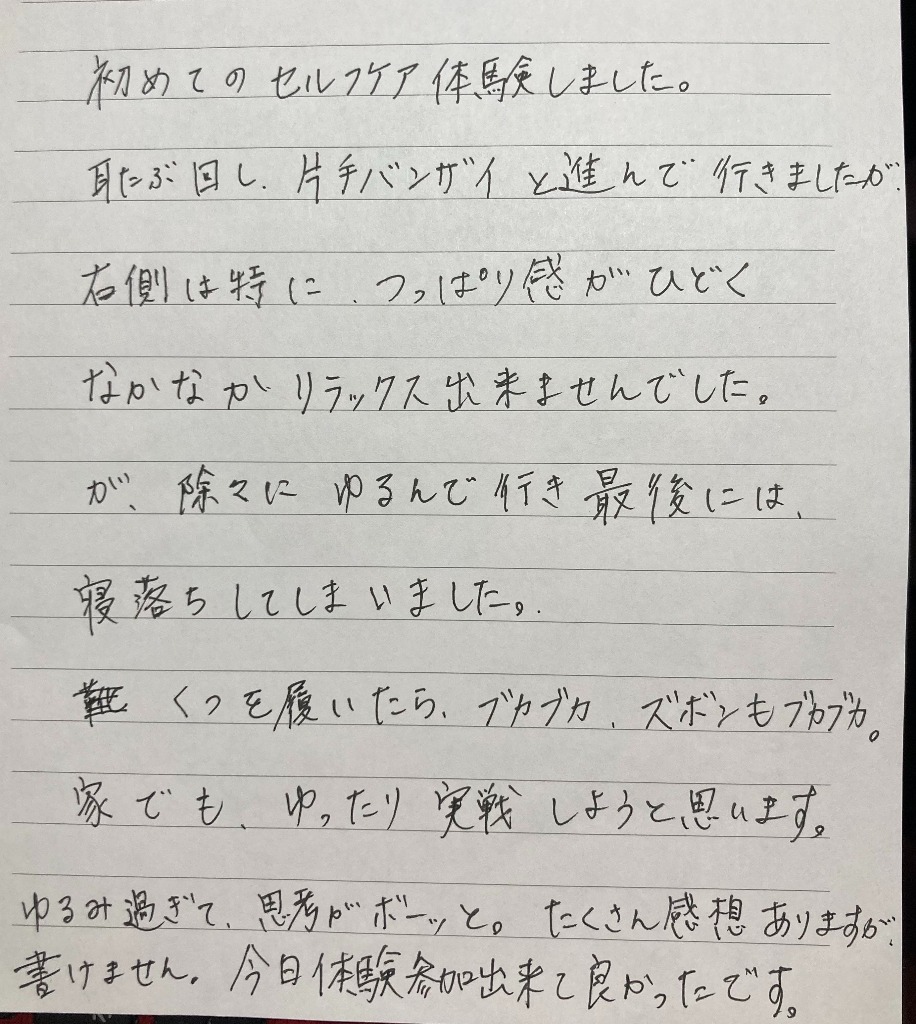 初めてのセルフケア体験しました。
耳たぶ回し、片手バンザイと進んで行きましたが、
右側は特に、つっぱり感がひどく
なかなかリラックス出来ませんでした。
が、除々にゆるんで行き最後には、
寝落ちしてしまいました。
くつを履いたら、ブカブカ、ズボンもブカブカ。
家でも、ゆったり実戦しようと思います。
ゆるみ過ぎて、思考がボーッと。たくさん感想ありますが、
書けません。今日体験参加出来て良かったです。